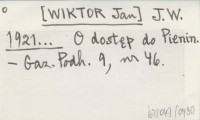 [WIKTOR Jan] J.W.
1921... O dostęp do Pienin.
– Gaz. Podh. 9, nr 46.